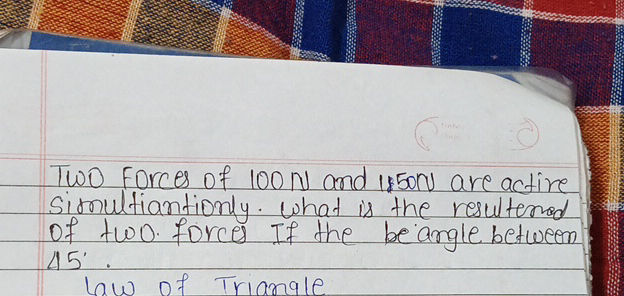 Two Forces of 100 N and 150N are active
simultiantionly. what is the resultened
of two. forces If the be angle between
45°.
Law of Triangle